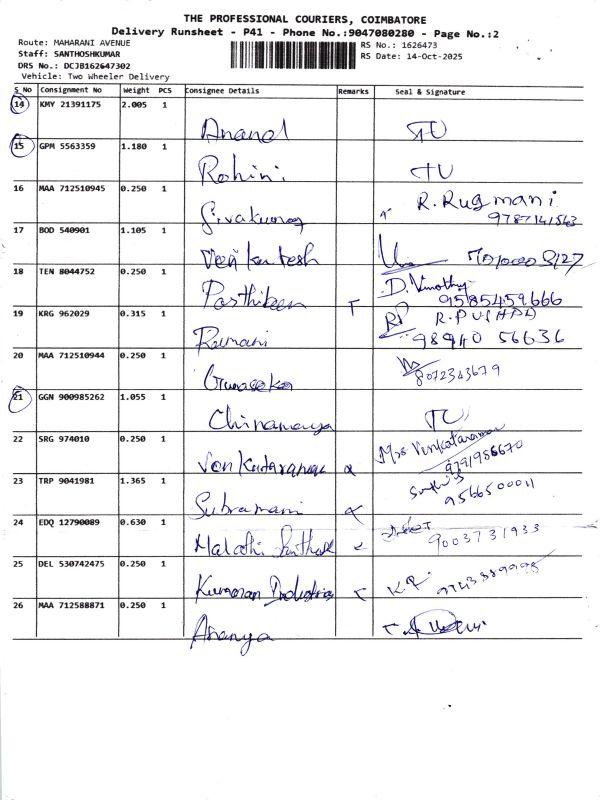 THE PROFESSIONAL COURIERS, COIMBATORE
Delivery Runsheet - P41 - Phone No.:9047080280 - Page No.:2
Route: MAHARANI AVENUE
RS No.: 1626473
Staff: SANTHOSHKUMAR
RS Date: 14-Oct-2025
DRS No.: DCJB162647302
Vehicle: Two Wheeler Delivery
S_No Consignment No Weight PCS Consignee Details Remarks Seal & Signature
14 KMY 21391175 2.005 1
Anand TU
15 GPM 5563359 1.180 1
Rohini TU
16 MAA 712510945 0.250 1 R. Rugmani
Sivakumar 9787141563
17 BOD 540901 1.105 1
Venkatesh
18 TEN 8044752 0.250 1 D. Vimothy
Parthiban 9585459666
19 KRG 962029 0.315 1 RP R. PUSHPA
Ramani 98940 56636
20 MAA 712510944 0.250 1
Gunaseka 8072343679
21 GGN 900985262 1.055 1
Chinamaya TU
22 SRG 974010 0.250 1 Mrs Venkataraman
Venkataraman 9791986670
23 TRP 9041981 1.365 1
Subramani 9566500011
24 EDQ 12790089 0.630 1
Malathi 9003731933
25 DEL 530742475 0.250 1
Kumaran Industries K.R.
26 MAA 712588871 0.250 1
Ananya